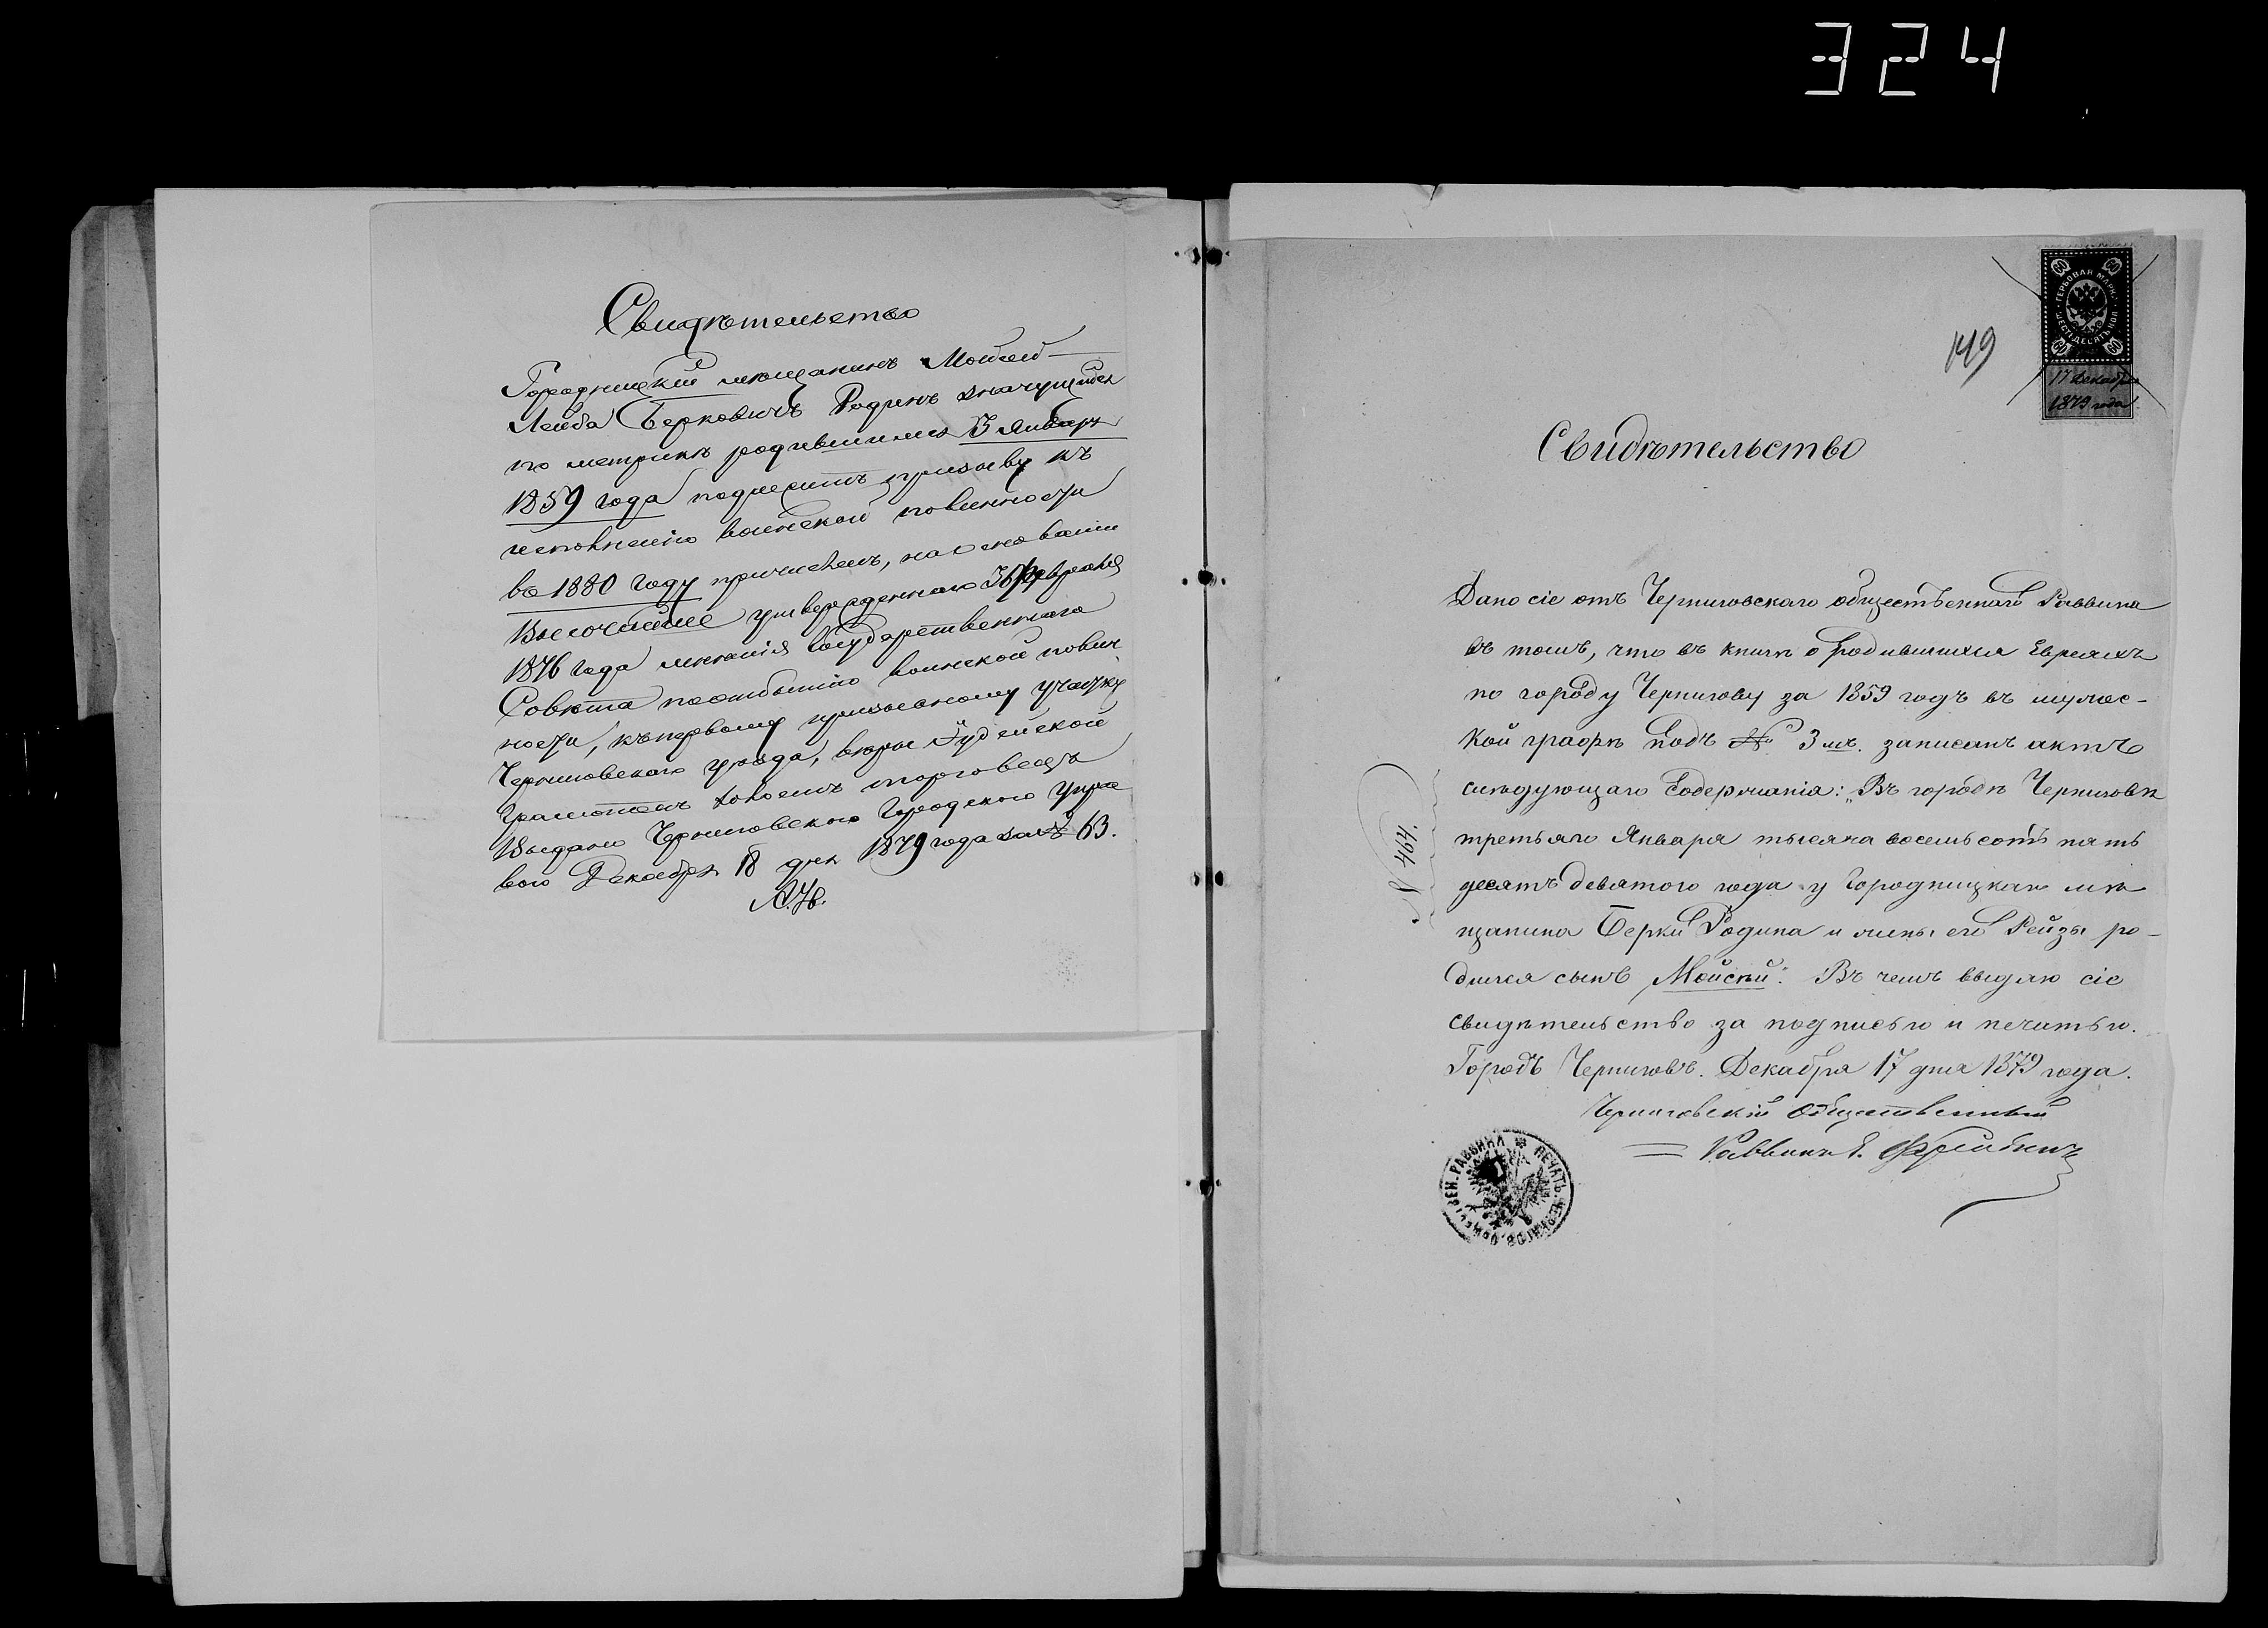 324
Свидѣтельство
Городницкій мѣщанинъ Мойсей-
Лейба Берковичъ Родинъ значущійся
по метрикѣ родившимся 3 Января
1859 года подлежитъ призыву къ
исполненію воинской повинности
въ 1880 году причисленъ, на основаніи
Высочайше утвержденнаго 3 Февраля
1876 года мнѣнія Государственнаго
Совѣта по отбытію воинской повин
ности, къ первому призывному участку
Черниговскаго уѣзда, вѣры Іудейской
грамотенъ холостъ торговецъ
Выдано Черниговскою Городскою Упра
вою Декабря 18 дня 1879 года за № 63.
149
ГЕРБОВАЯ МАРКА
ШЕСТЬДЕСЯТЪ КОП
60
17 Декабря
1879 года
Свидѣтельство
Дано сіе отъ Черниговскаго общественнаго Раввина
въ томъ, что въ книгѣ о родившихся Евреяхъ
по городу Чернигову за 1859 годъ въ мужес-
кой графѣ подъ № 3 мъ. записанъ актъ
слѣдующаго содержанія: „Въ городѣ Черниговѣ
третьяго Января тысяча восемьсотъ пять
десятъ девятого года у Городницкаго мѣ
щанина Берки Родина и жены его Рейзы ро-
дился сынъ Мойсѣй". Въ чемъ выдаю сіе
свидѣтельство за подписью и печатью.
Городъ Черниговъ. Декабря 17 дня 1879 года.
Черниговскій Общественный
Раввинъ
№ 494
ПЕЧАТЬ ЧЕРНИГОВ. ОБЩЕСТВЕН. РАВВИНА